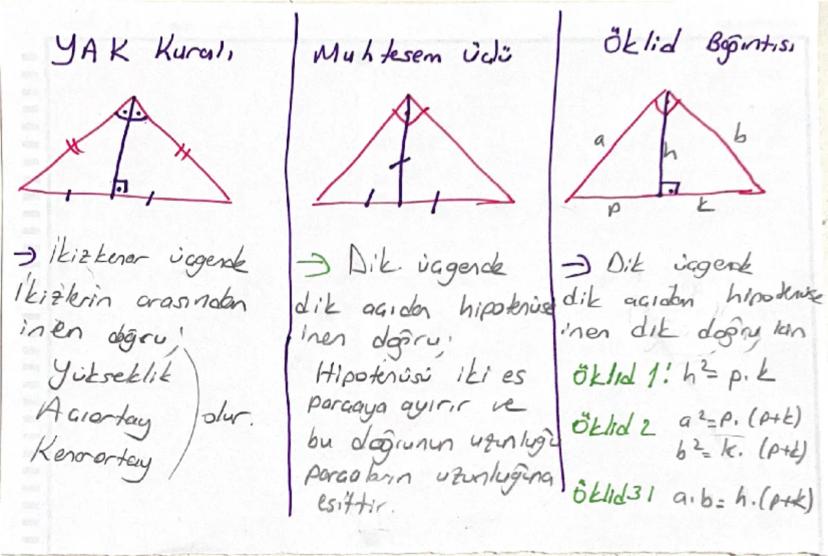 YAK Kuralı
→ İkizkenar üçgende
İkizlerin arasından
inen doğru;
Yükseklik
Açıortay
Kenarortay
olur.
Muhteşem üçlü
→ Dik üçgende
dik açıdan hipotenüse
inen doğru;
Hipotenüsü iki eş
parçaya ayırır ve
bu doğrunun uzunluğu
parçaların uzunluğuna
eşittir.
Öklid Bağıntısı
a
b
h
p
k
→ Dik üçgende
dik açıdan hipotenüse
inen dik doğru için
Öklid 1: h² = p.k
Öklid 2 a²=p.(p+k)
b²=k.(p+k)
Öklid 3: a.b=h.(p+k)